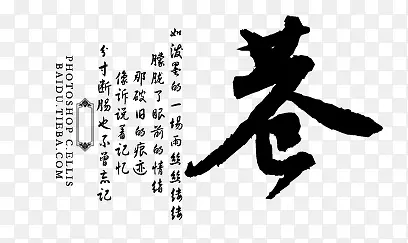 巷
如泼墨的一场雨丝丝缕缕
朦胧了眼前的情绪
那破旧的痕迹
像诉说着记忆
分寸断肠也不曾忘记
PHOTOSHOP C.ELLIS
BAIDU.TIEBA.COM